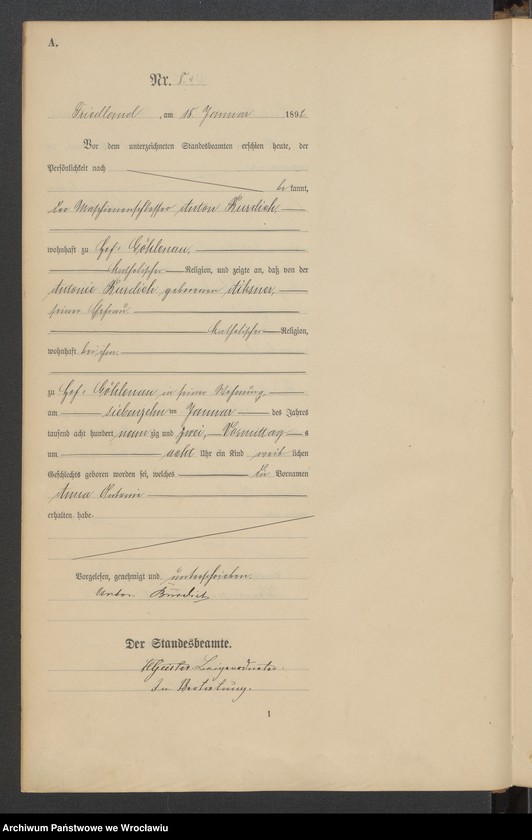 A.
Nr. 8.
Friedland, am 18. Januar 1892
Vor dem unterzeichneten Standesbeamten erschien heute, der
Persönlichkeit nach
be kannt,
der Maschinenschlosser Anton
wohnhaft zu Hof-Göhlenau,
katholischer Religion, und zeigte an, daß von der
Antonie geborenen
seiner Ehefrau
katholischer Religion,
wohnhaft bei ihm
zu Hof-Göhlenau in seiner Wohnung
am siebenzehn ten Januar des Jahres
tausend acht hundert neun zig und zwei, Vormittag s
um acht Uhr ein Kind weib lichen
Geschlechts geboren worden sei, welches die Vornamen
Anna Antonie
erhalten habe.
Vorgelesen, genehmigt und unterschrieben.
Anton
Der Standesbeamte.
In Vertretung.
1
Archiwum Państwowe we Wrocławiu